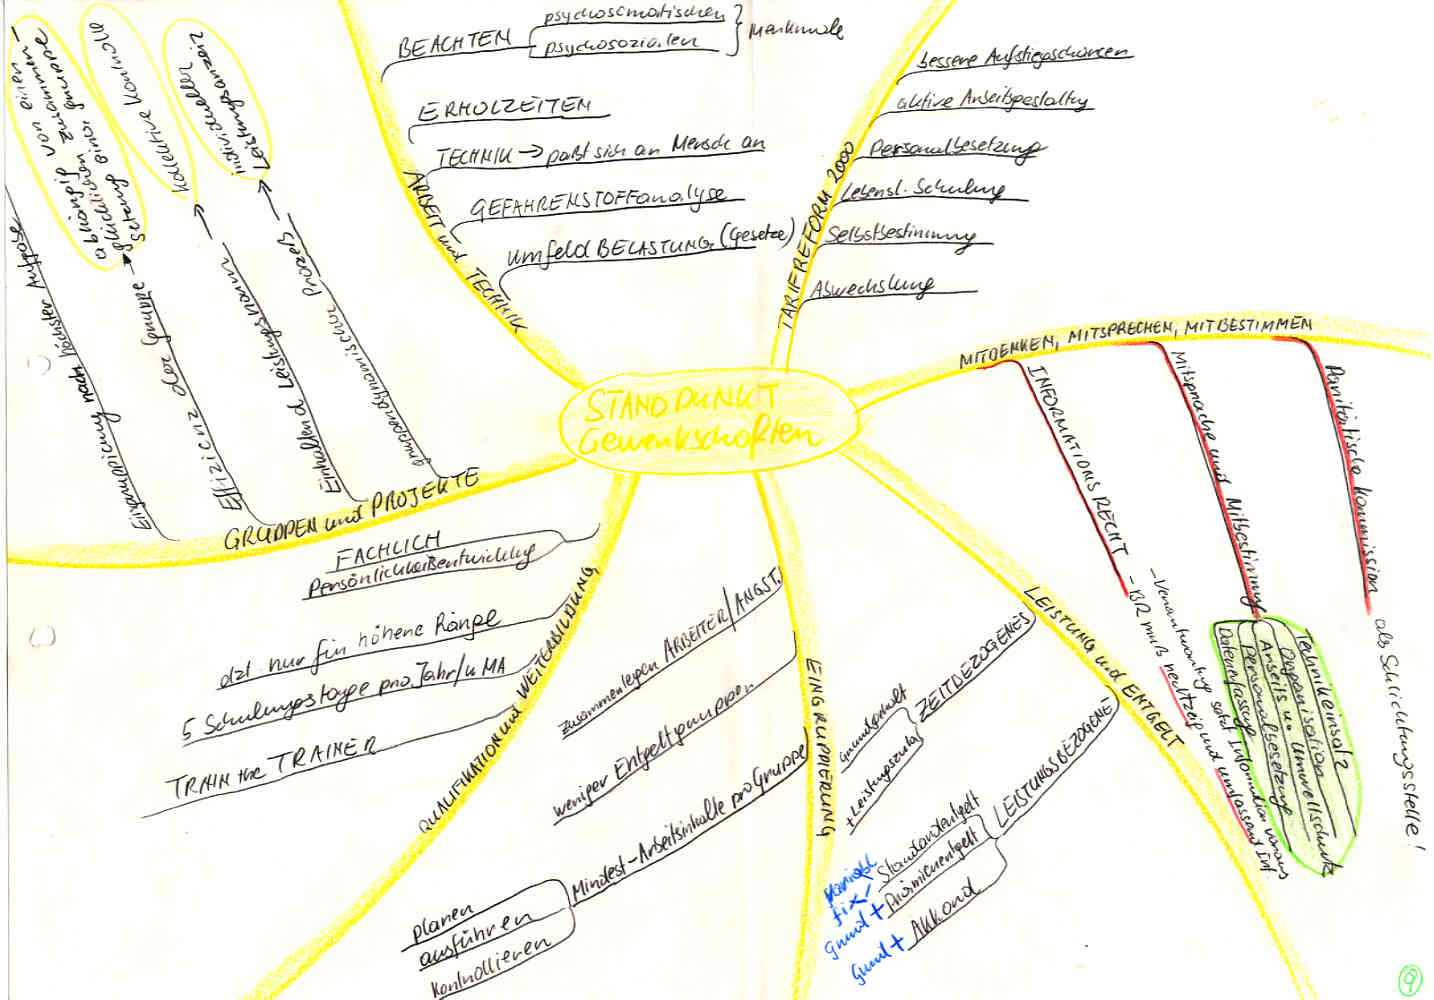 STANDPUNKT
Gewerkschaften
ARBEIT und TECHNIK
BEACHTEN
psychosomatischen
psychosozialen
Merkmale
ERHOLZEITEN
TECHNIK → paßt sich an Mensch an
GEFAHRENSTOFFanalyse
Umfeld BELASTUNG (Gesetze)
TARIFREFORM 2000
bessere Aufstiegschancen
aktive Arbeitsgestaltg
Personalbesetzung
Lebensl. Schulung
Selbstbestimmung
Abwechslung
MITDENKEN, MITSPRECHEN, MITBESTIMMEN
INFORMATIONSRECHT
- BR muß rechtzeitig und umfassend Inf
- Verantwortung setzt Information voraus
Mitsprache und Mitbestimmung
Technikeinsatz
Organisation
Arbeits u. Umweltschutz
Personalbesetzung
Datenerfassung
Paritätische Kommission
als Schlichtungsstelle!
LEISTUNG und ENTGELT
ZEITBEZOGENES
Grundgehalt
+ Leistungszulag
LEISTUNGSBEZOGENE
Standardentgelt
Prämienentgelt
Akkord
fix
Grund +
Grund +
EINGRUPPIERUNG
Zusammenlegen ARBEITER/ANGST.
weniger Entgeltgruppen
Mindest-Arbeitsinhalte pro Gruppe
planen
ausführen
kontrollieren
QUALIFIKATION und WEITERBILDUNG
FACHLICH
Persönlichkeitsentwicklg
dzt. nur für höhere Ränge
5 Schulungstage pro Jahr/u MA
TRAIN the TRAINER
GRUPPEN und PROJEKTE
gruppendynamischer Prozeß
Einhaltend Leistungsmann →
individueller
Leistungsanreiz
Effizienz der Gruppe →
kollektive Kontrolle
Eingruppierung nach höchster Aufgabe
abhängig von einer
glücklichen Zusammen-
setzung einer Gruppe
9